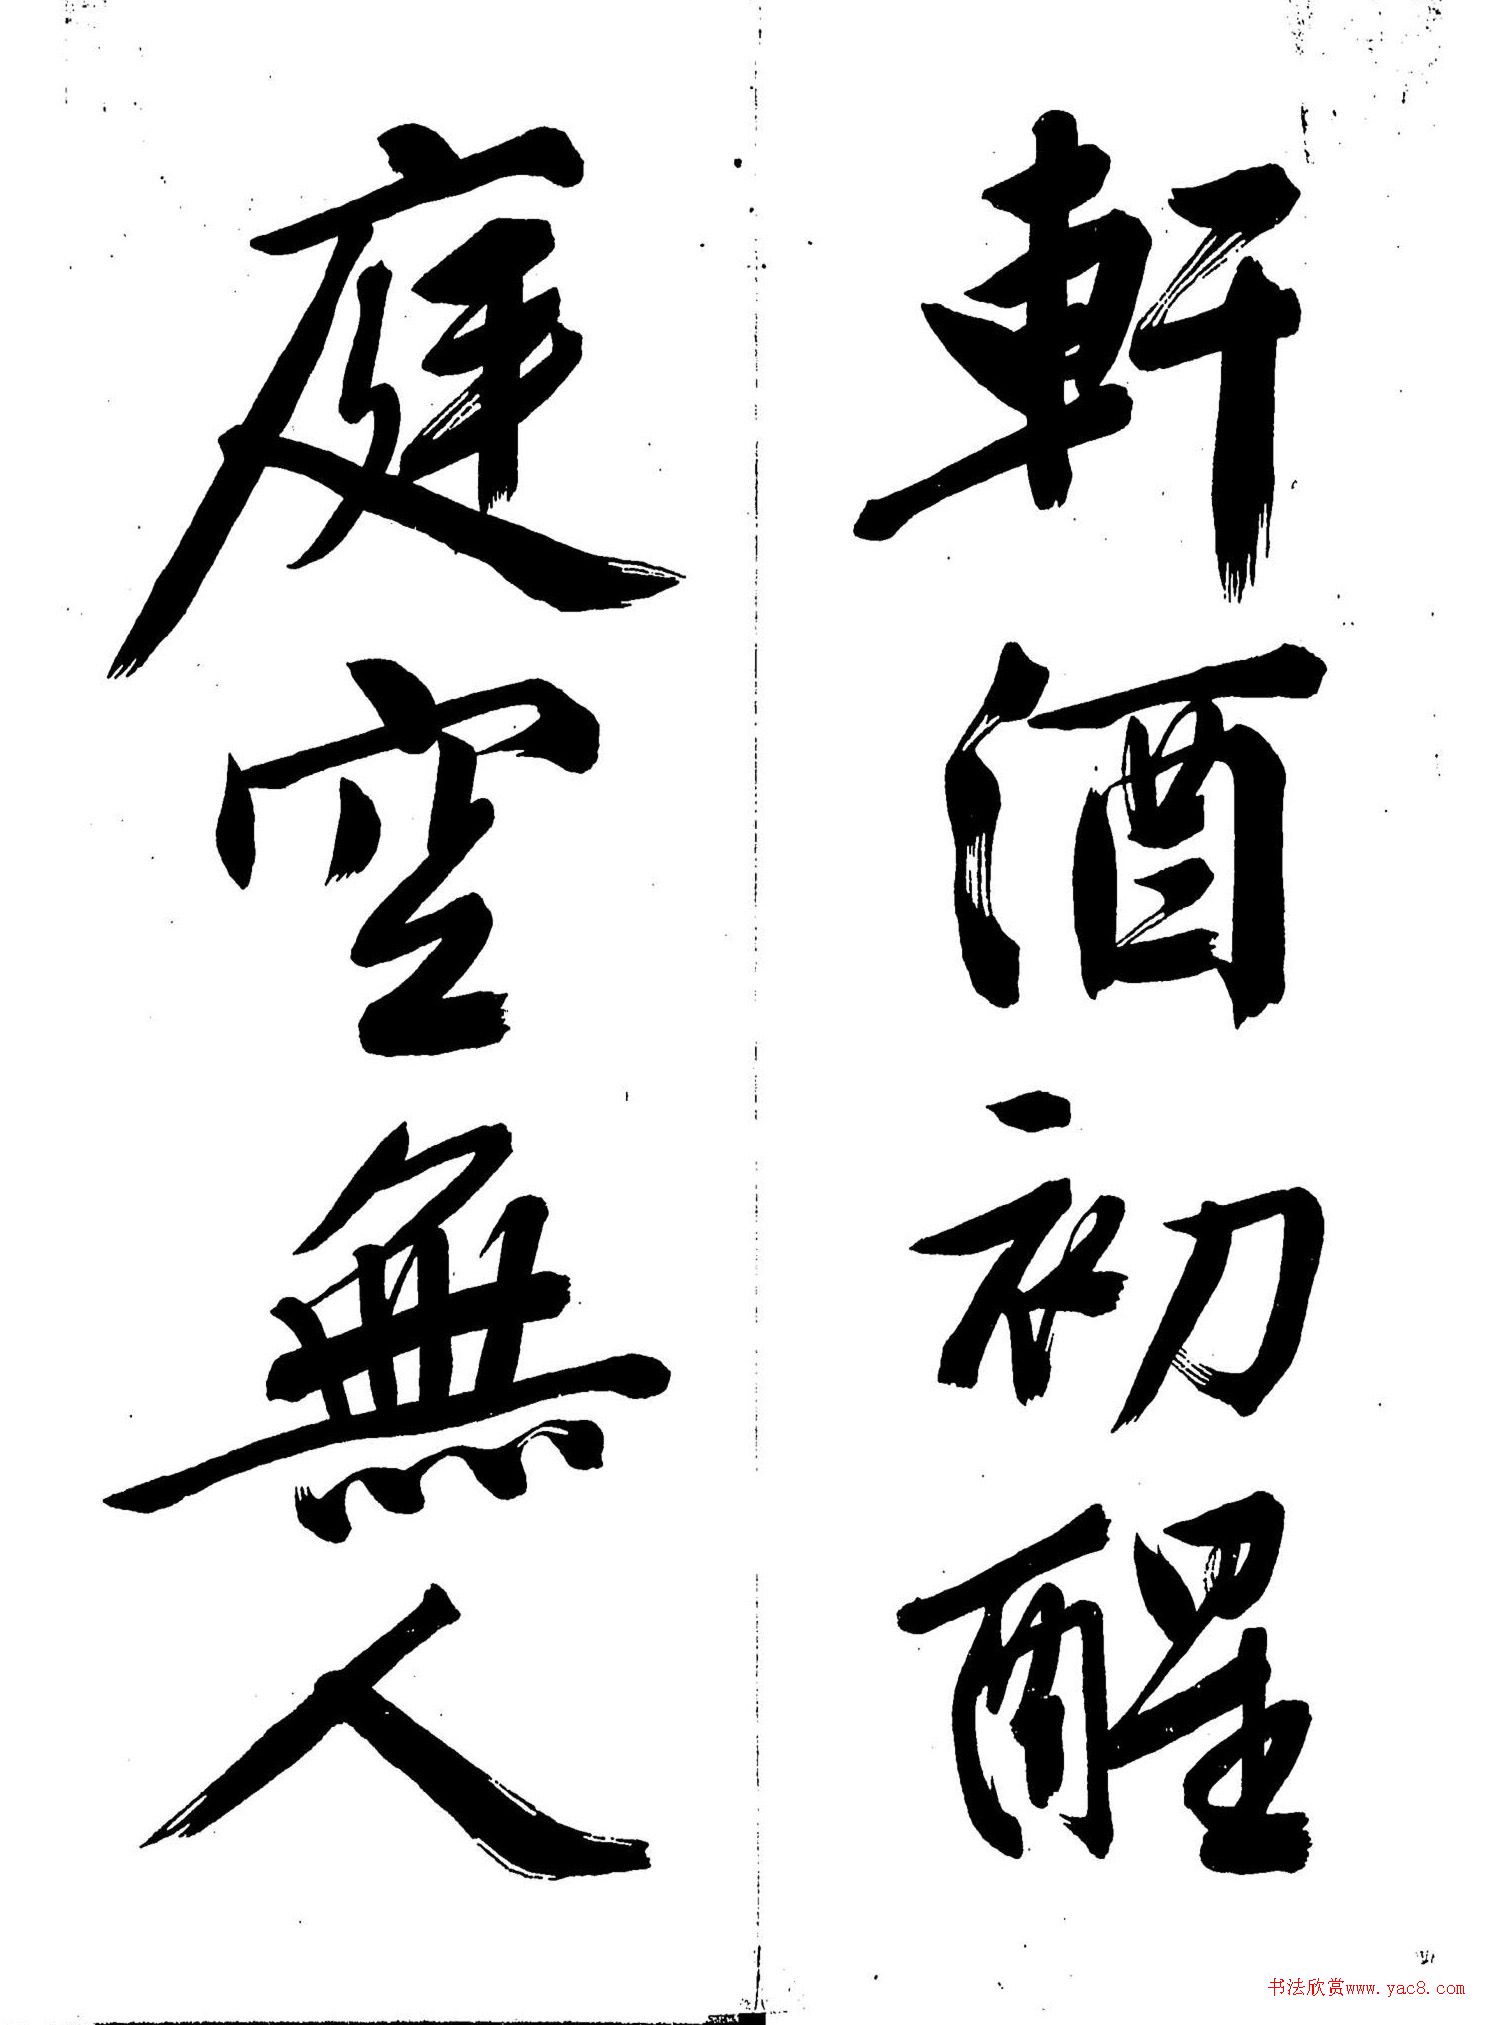 軒酒初醒
庭空無人
书法欣赏www.yac8.com